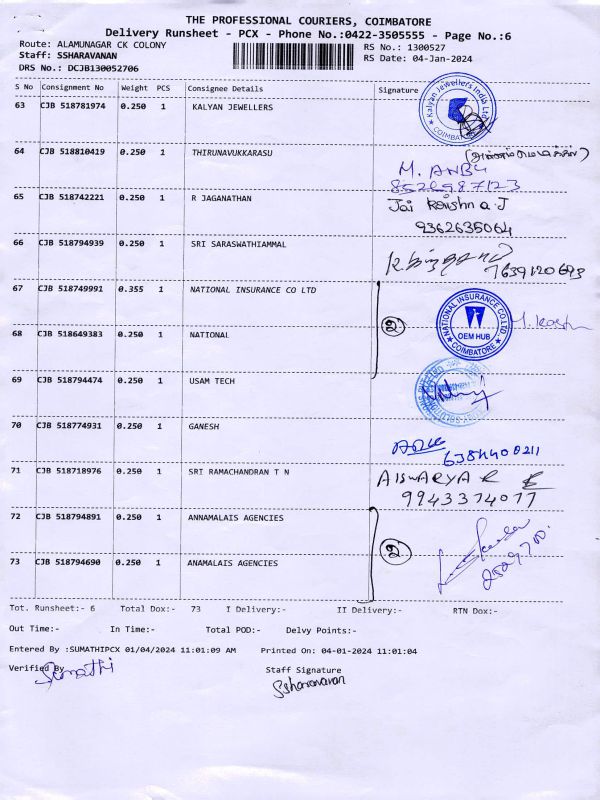 THE PROFESSIONAL COURIERS, COIMBATORE
Delivery Runsheet - PCX - Phone No.:0422-3505555 - Page No.:6
Route: ALAMUNAGAR CK COLONY RS No.: 1300527
Staff: SSHARAVANAN RS Date: 04-Jan-2024
DRS No.: DCJB130052706
S No Consignment No Weight PCS Consignee Details Signature
63 CJB 518781974 0.250 1 KALYAN JEWELLERS
Kalyan Jewellers India Ltd
COIMBATORE
64 CJB 518810419 0.250 1 THIRUNAVUKKARASU
M. ANBU
8526987123
65 CJB 518742221 0.250 1 R JAGANATHAN Jai Krishna.J
9362635064
66 CJB 518794939 0.250 1 SRI SARASWATHIAMMAL
7639120693
67 CJB 518749991 0.355 1 NATIONAL INSURANCE CO LTD
NATIONAL INSURANCE CO.LTD
OEM HUB
COIMBATORE
2
68 CJB 518649383 0.250 1 NATIONAL
69 CJB 518794474 0.250 1 USAM TECH
70 CJB 518774931 0.250 1 GANESH
6384400211
71 CJB 518718976 0.250 1 SRI RAMACHANDRAN T N AISWARYA R
9943374077
72 CJB 518794891 0.250 1 ANNAMALAIS AGENCIES
2
73 CJB 518794690 0.250 1 ANAMALAIS AGENCIES
Tot. Runsheet:- 6 Total Dox:- 73 I Delivery:- II Delivery:- RTN Dox:-
Out Time:- In Time:- Total POD:- Delvy Points:-
Entered By :SUMATHIPCX 01/04/2024 11:01:09 AM Printed On: 04-01-2024 11:01:04
Verified By Staff Signature
Sumathi Ssharavanan